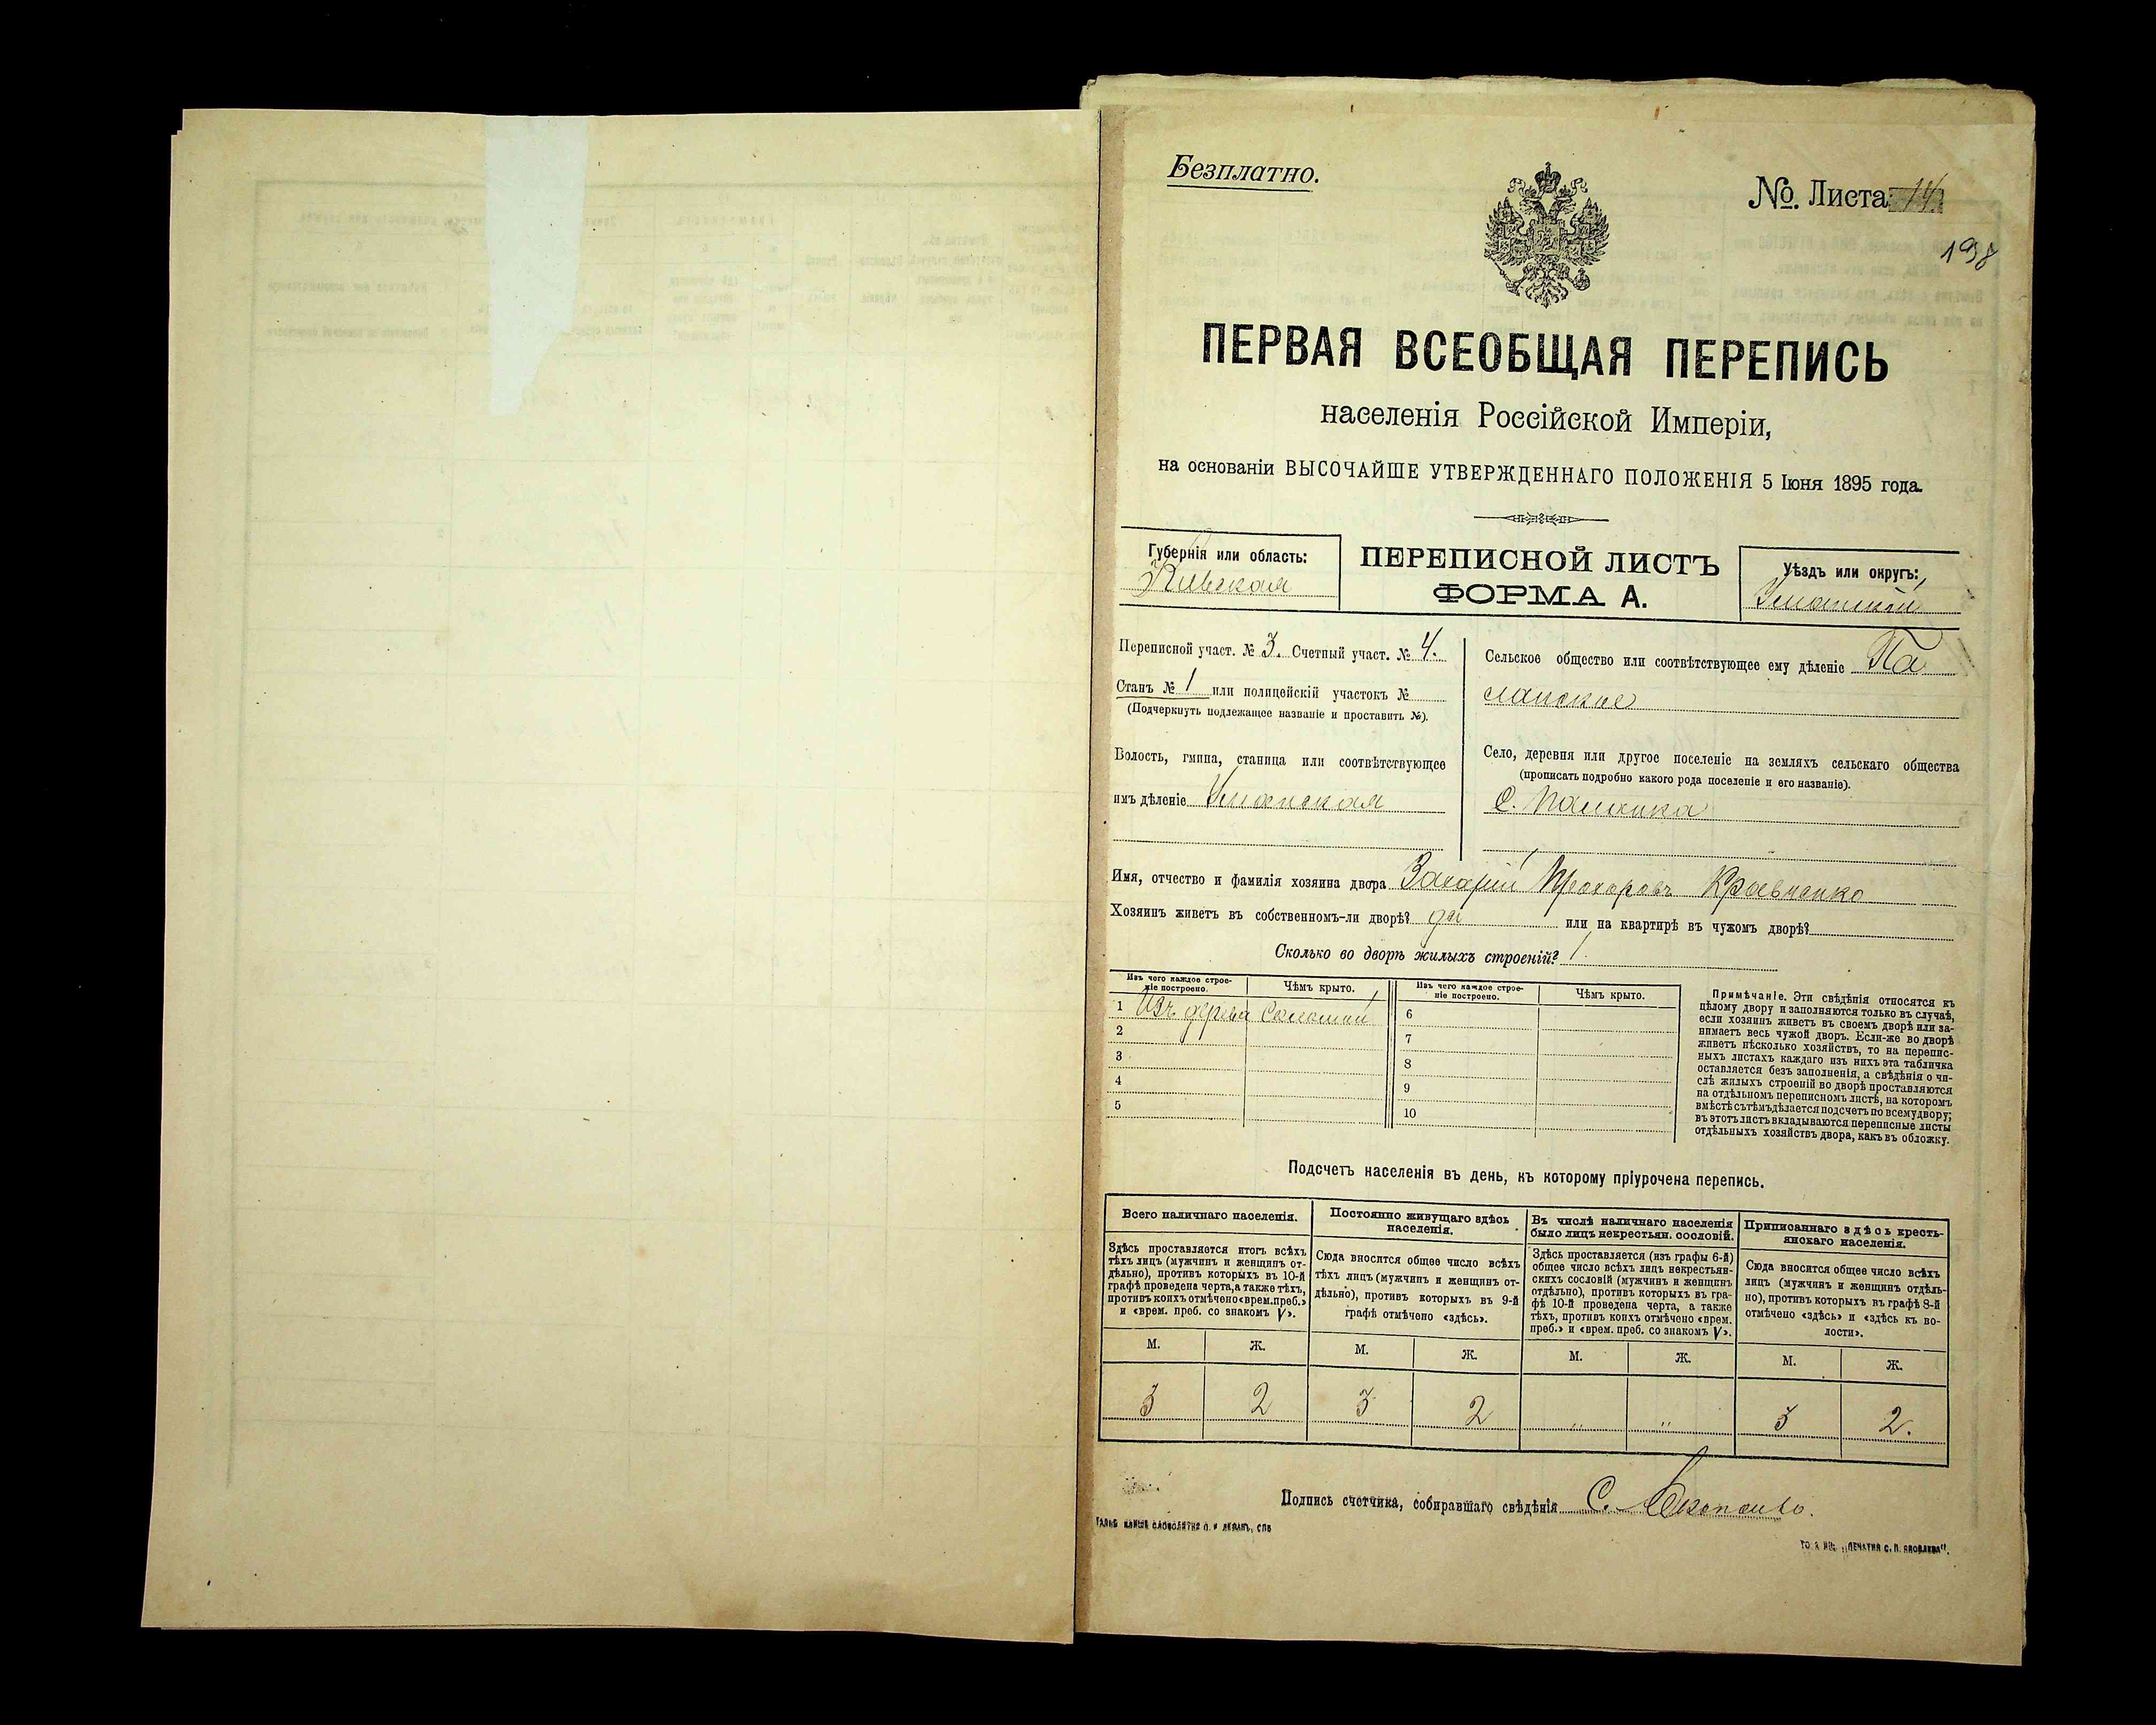 Безплатно.
№. Листа 14
198
ПЕРВАЯ ВСЕОБЩАЯ ПЕРЕПИСЬ
населенія Россійской Имперіи,
на основаніи ВЫСОЧАЙШЕ УТВЕРЖДЕННАГО ПОЛОЖЕНІЯ 5 Іюня 1895 года.
Губернія или область:
Кіевская
ПЕРЕПИСНОЙ ЛИСТЪ
ФОРМА А.
Уѣздъ или округъ:
Уманскій
Переписной участ. № 3. Счетный участ. № 4.
Станъ № 1 или полицейскій участокъ №
(Подчеркнуть подлежащее названіе и проставить №).
Волость, гмина, станица или соотвѣтствующее
имъ дѣленіе Уманская
Сельское общество или соотвѣтствующее ему дѣленіе Па
ланское
Село, деревня или другое поселеніе на земляхъ сельскаго общества
(прописать подробно какого рода поселеніе и его названіе).
С. Паланка
Имя, отчество и фамилія хозяина двора Захарій Прохоровъ Кравченко
Хозяинъ живетъ въ собственномъ-ли дворѣ? да или на квартирѣ въ чужомъ дворѣ?
Сколько во дворѣ жилыхъ строеній? 1.
Изъ чего каждое строе-
ніе построено.
Чѣмъ крыто.
1 Изъ дерева Соломой
2
3
4
5
Изъ чего каждое строе-
ніе построено.
Чѣмъ крыто.
6
7
8
9
10
Примѣчаніе. Эти свѣдѣнія относятся къ
цѣлому двору и заполняются только въ случаѣ,
если хозяинъ живетъ въ своемъ дворѣ или за-
нимаетъ весь чужой дворъ. Если-же во дворѣ
живетъ нѣсколько хозяйствъ, то на перепис-
ныхъ листахъ каждаго изъ нихъ эта табличка
оставляется безъ заполненія, а свѣдѣнія о чи-
слѣ жилыхъ строеній во дворѣ проставляются
на отдѣльномъ переписномъ листѣ, на которомъ
вмѣстѣ съ тѣмъ дѣлается подсчетъ по всему двору;
въ этотъ листъ вкладываются переписные листы
отдѣльныхъ хозяйствъ двора, какъ въ обложку.
Подсчетъ населенія въ день, къ которому пріурочена перепись.
Всего наличнаго населенія.
Здѣсь проставляется итогъ всѣхъ
тѣхъ лицъ (мужчинъ и женщинъ от-
дѣльно), противъ которыхъ въ 10-й
графѣ проведена черта, а также тѣхъ,
противъ коихъ отмѣчено «врем. преб.»
и «врем. преб. со знакомъ V».
М. Ж.
3 2
Постоянно живущаго здѣсь
населенія.
Сюда вносится общее число всѣхъ
тѣхъ лицъ (мужчинъ и женщинъ от-
дѣльно), противъ которыхъ въ 9-й
графѣ отмѣчено «здѣсь».
М. Ж.
3 2
Въ числѣ наличнаго населенія
было лицъ некрестьян. сословій.
Здѣсь проставляется (изъ графы 6-й)
общее число всѣхъ лицъ некрестьян-
скихъ сословій (мужчинъ и женщинъ
отдѣльно), противъ которыхъ въ гра-
фѣ 10-й проведена черта, а также
тѣхъ, противъ коихъ отмѣчено «врем.
преб.» и «врем. преб. со знакомъ V».
М. Ж.
" "
Приписаннаго здѣсь кресть-
янскаго населенія.
Сюда вносится общее число всѣхъ
лицъ (мужчинъ и женщинъ отдѣль-
но), противъ которыхъ въ графѣ 8-й
отмѣчено «здѣсь» и «здѣсь къ во-
лости».
М. Ж.
3 2.
Подпись счетчика, собиравшаго свѣдѣнія С.